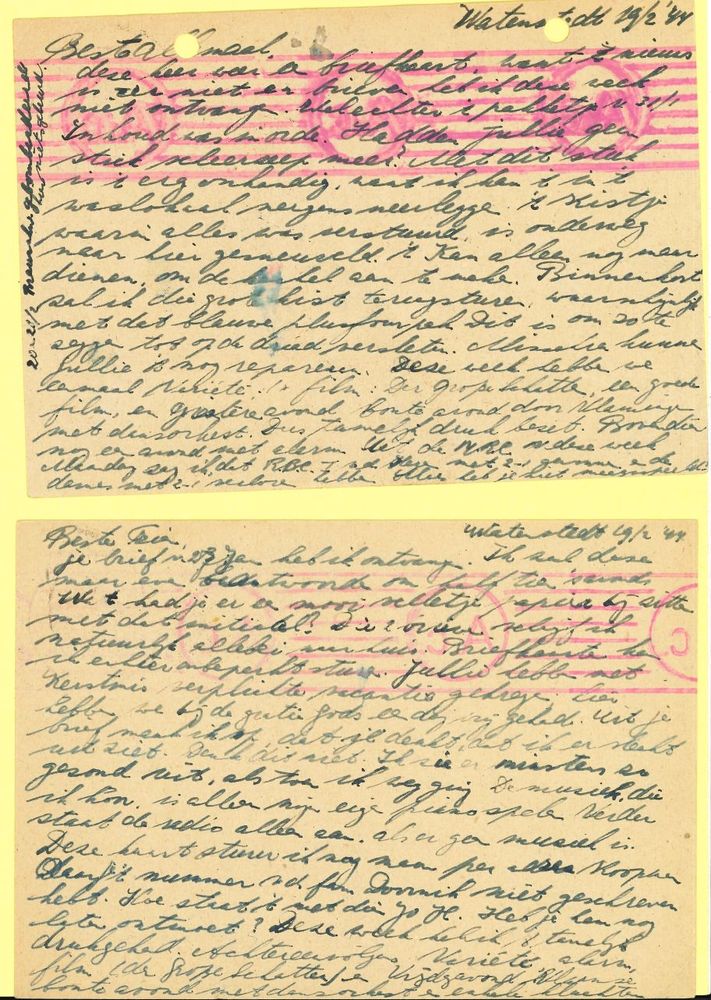 Watenstedt 19/2 '44
Beste Allemaal.
deze keer weer een briefkaart, want 't nieuws
is er niet en brieven heb ik deze week
niet ontvangen slechts 1 pakketje v. 21/1
Inhoud was in orde. Hadden jullie geen
stuk scheerzeep meer? Met dit stuk
is 't erg onhandig, want ik kan 't in 't
waslokaal nergens neerleggen. 't Kistje
waarin alles was verstuurd, is onderweg
naar hier gesneuveld. 't Kan alleen nog maar
dienen, om de kachel aan te maken. Binnenkort
zal ik die grote kist terugsturen, waarschijnlijk
met dat blauwe plusfour pak Dit is om zo te
zeggen tot op de draad versleten. Misschien kunnen
jullie 't nog repareren. Deze week hebben we
eenmaal Variété. 1x film: Der grosse Schatten, een goede
film, en gisteren avond bonte avond door Vlamingen
met dansorkest. Dus tamelijk druk bezet. Bovendien
nog een avond met alarm. Uit de N.R.C. v. deze week
Maandag zag ik dat R.B.C. met 2-1 gewonnen en de
dames met 2-1 verloren hebben
20-21/2
Watenstedt 19/2 '44
Beste Teun,
je brief v. 23 Jan heb ik ontvangen. Ik zal deze
maar even beantwoorden om half tien 's avonds
Wat had je er een mooi velletje papier bij zitten
met dat initiaal! Die 2 brieven schrijf ik
natuurlijk allebei naar huis. Briefkaarten kan
ik er hier onbeperkt sturen. Jullie hebben met
Kerstmis verplichte vacantie gekregen. hier
hebben we bij de gratie Gods een dag vrij gehad. Uit je
brief maak ik op, dat je denkt, dat ik er slecht
uit ziet. Denk dit niet. Ik zie er minstens zo
gezond uit, als toen ik wegging De muziek, die
ik hoor, is alleen mijn eigen piano spelen Verder
staat de radio alleen aan. als er geen muziek is.
Deze kaart stuur ik nog maar per adres Koopman
Daar je 't nummer v.d. fam Doornik niet geschreven
hebt. Hoe staat 't met die Jo H. Heb je hem nog
laten ontmoet? Deze week heb ik 't tamelijk
druk gehad. Achtereenvolgens Variété, alarm,
film (der grosse Schatten) en Vrijdagavond Vlaamse
bonte avond met dansorkest en